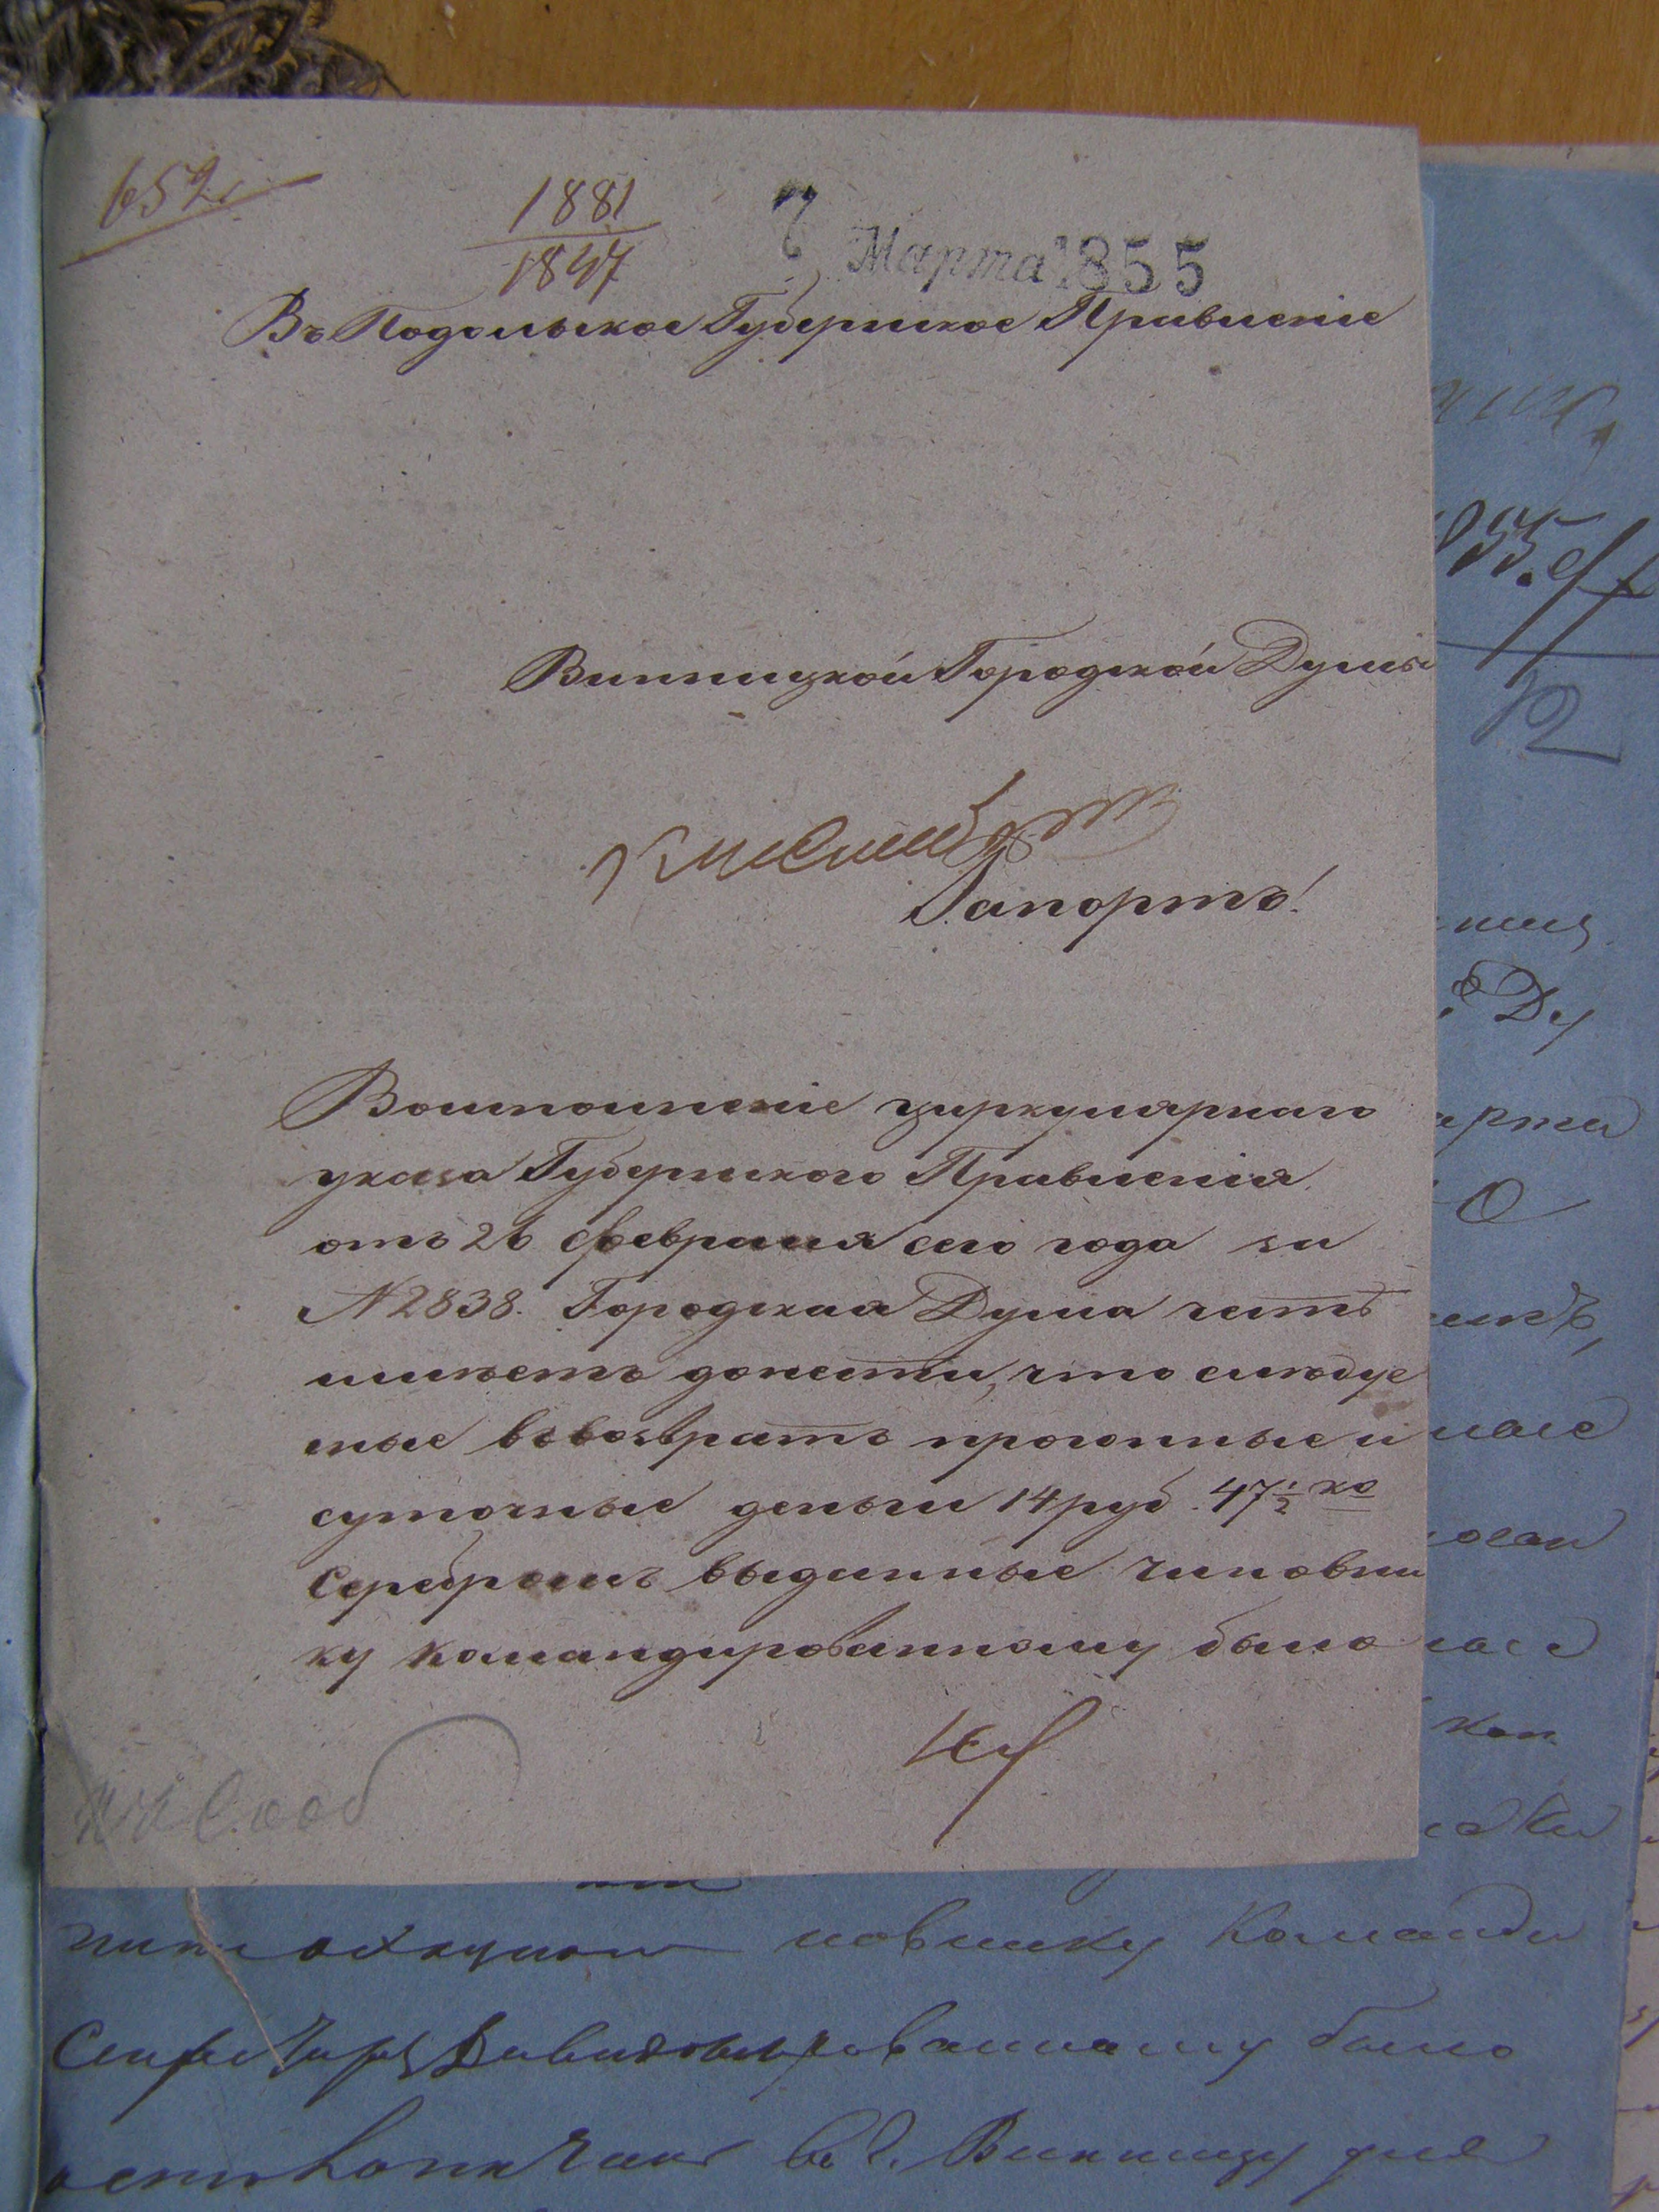 652
1881
1847
7 Марта 1855
Въ Подольское Губернское Правленіе
Винницкой Городской Думы
Рапортъ!
Воисполненіе циркулярнаго
указа Губернскаго Правленія
отъ 26 февраля сего года за
№ 2838. Городская Дума честь
имѣетъ донести, что слѣдуе
мые въ возвратъ прогонные и
суточные деньги 14 руб. 47 1/2 ко
серебромъ выданные чиновни
ку командированному было
855
12
Ду
арта
коп
новнику Команди
рованному было
въ г. Винницу для